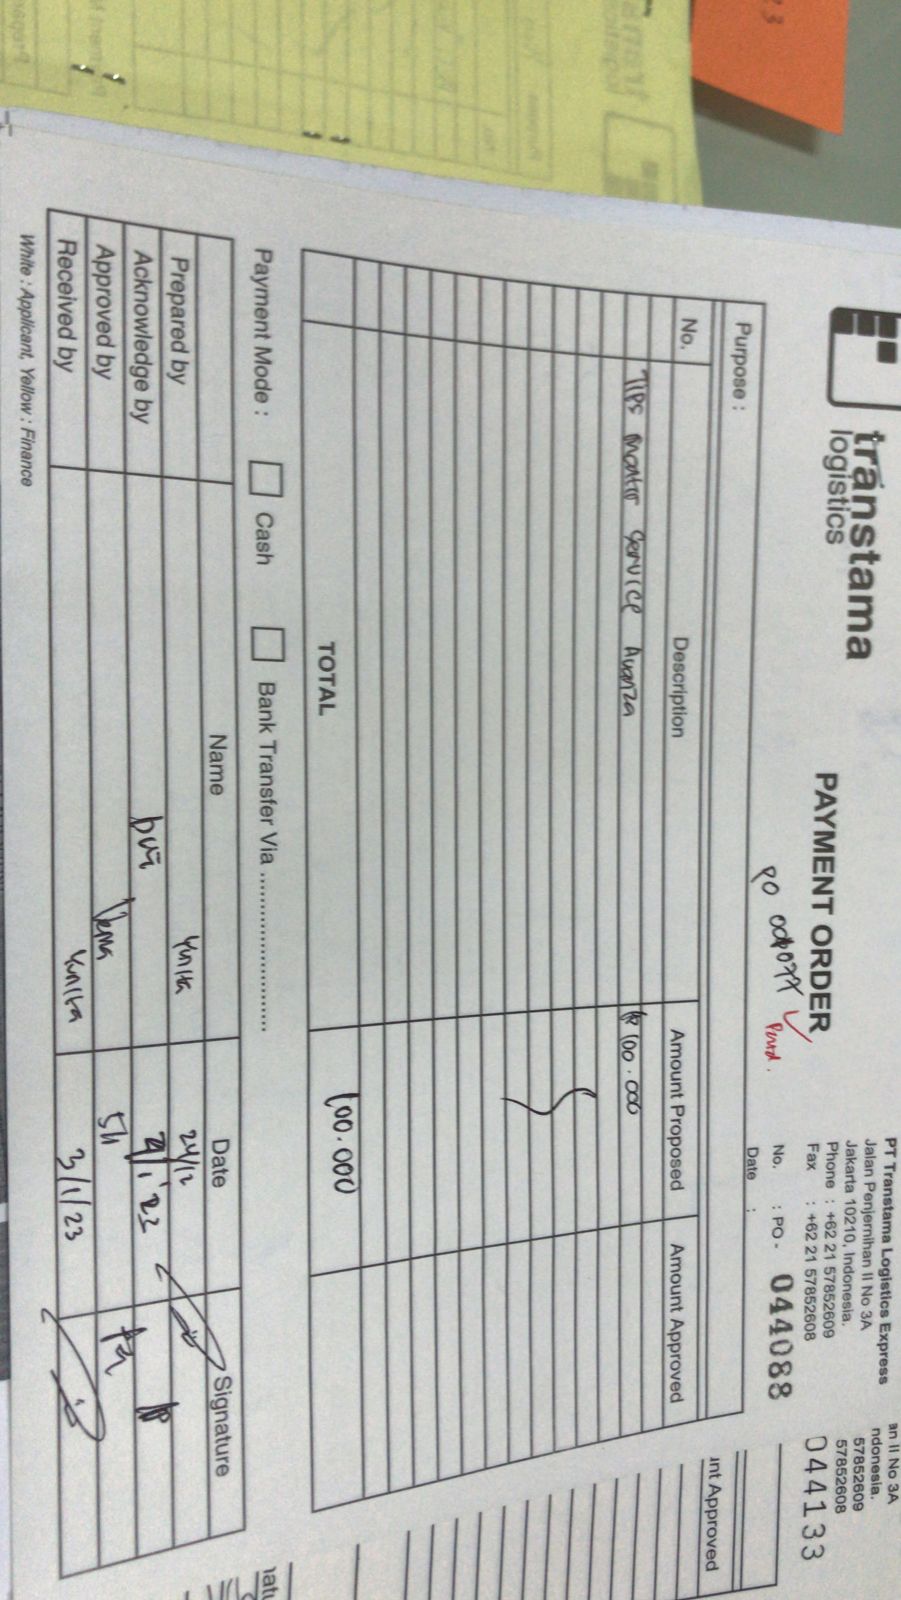 transtama
logistics
PAYMENT ORDER
PT Transtama Logistics Express
Jalan Penjernihan II No 3A
Jakarta 10210, Indonesia.
Phone : +62 21 57852609
Fax : +62 21 57852608
No. : PO - 044088
Date :
Purpose :
No. Description Amount Proposed Amount Approved
Tips montir service Avanza Rp 100.000
TOTAL 100.000
Payment Mode : Cash Bank Transfer Via ............................
Name Date Signature
Prepared by Yunita 24/12
Acknowledge by
Approved by
Received by Yunita 3/1/23
White : Applicant, Yellow : Finance
an II No 3A
ndonesia.
57852609
57852608
044133
unt Approved